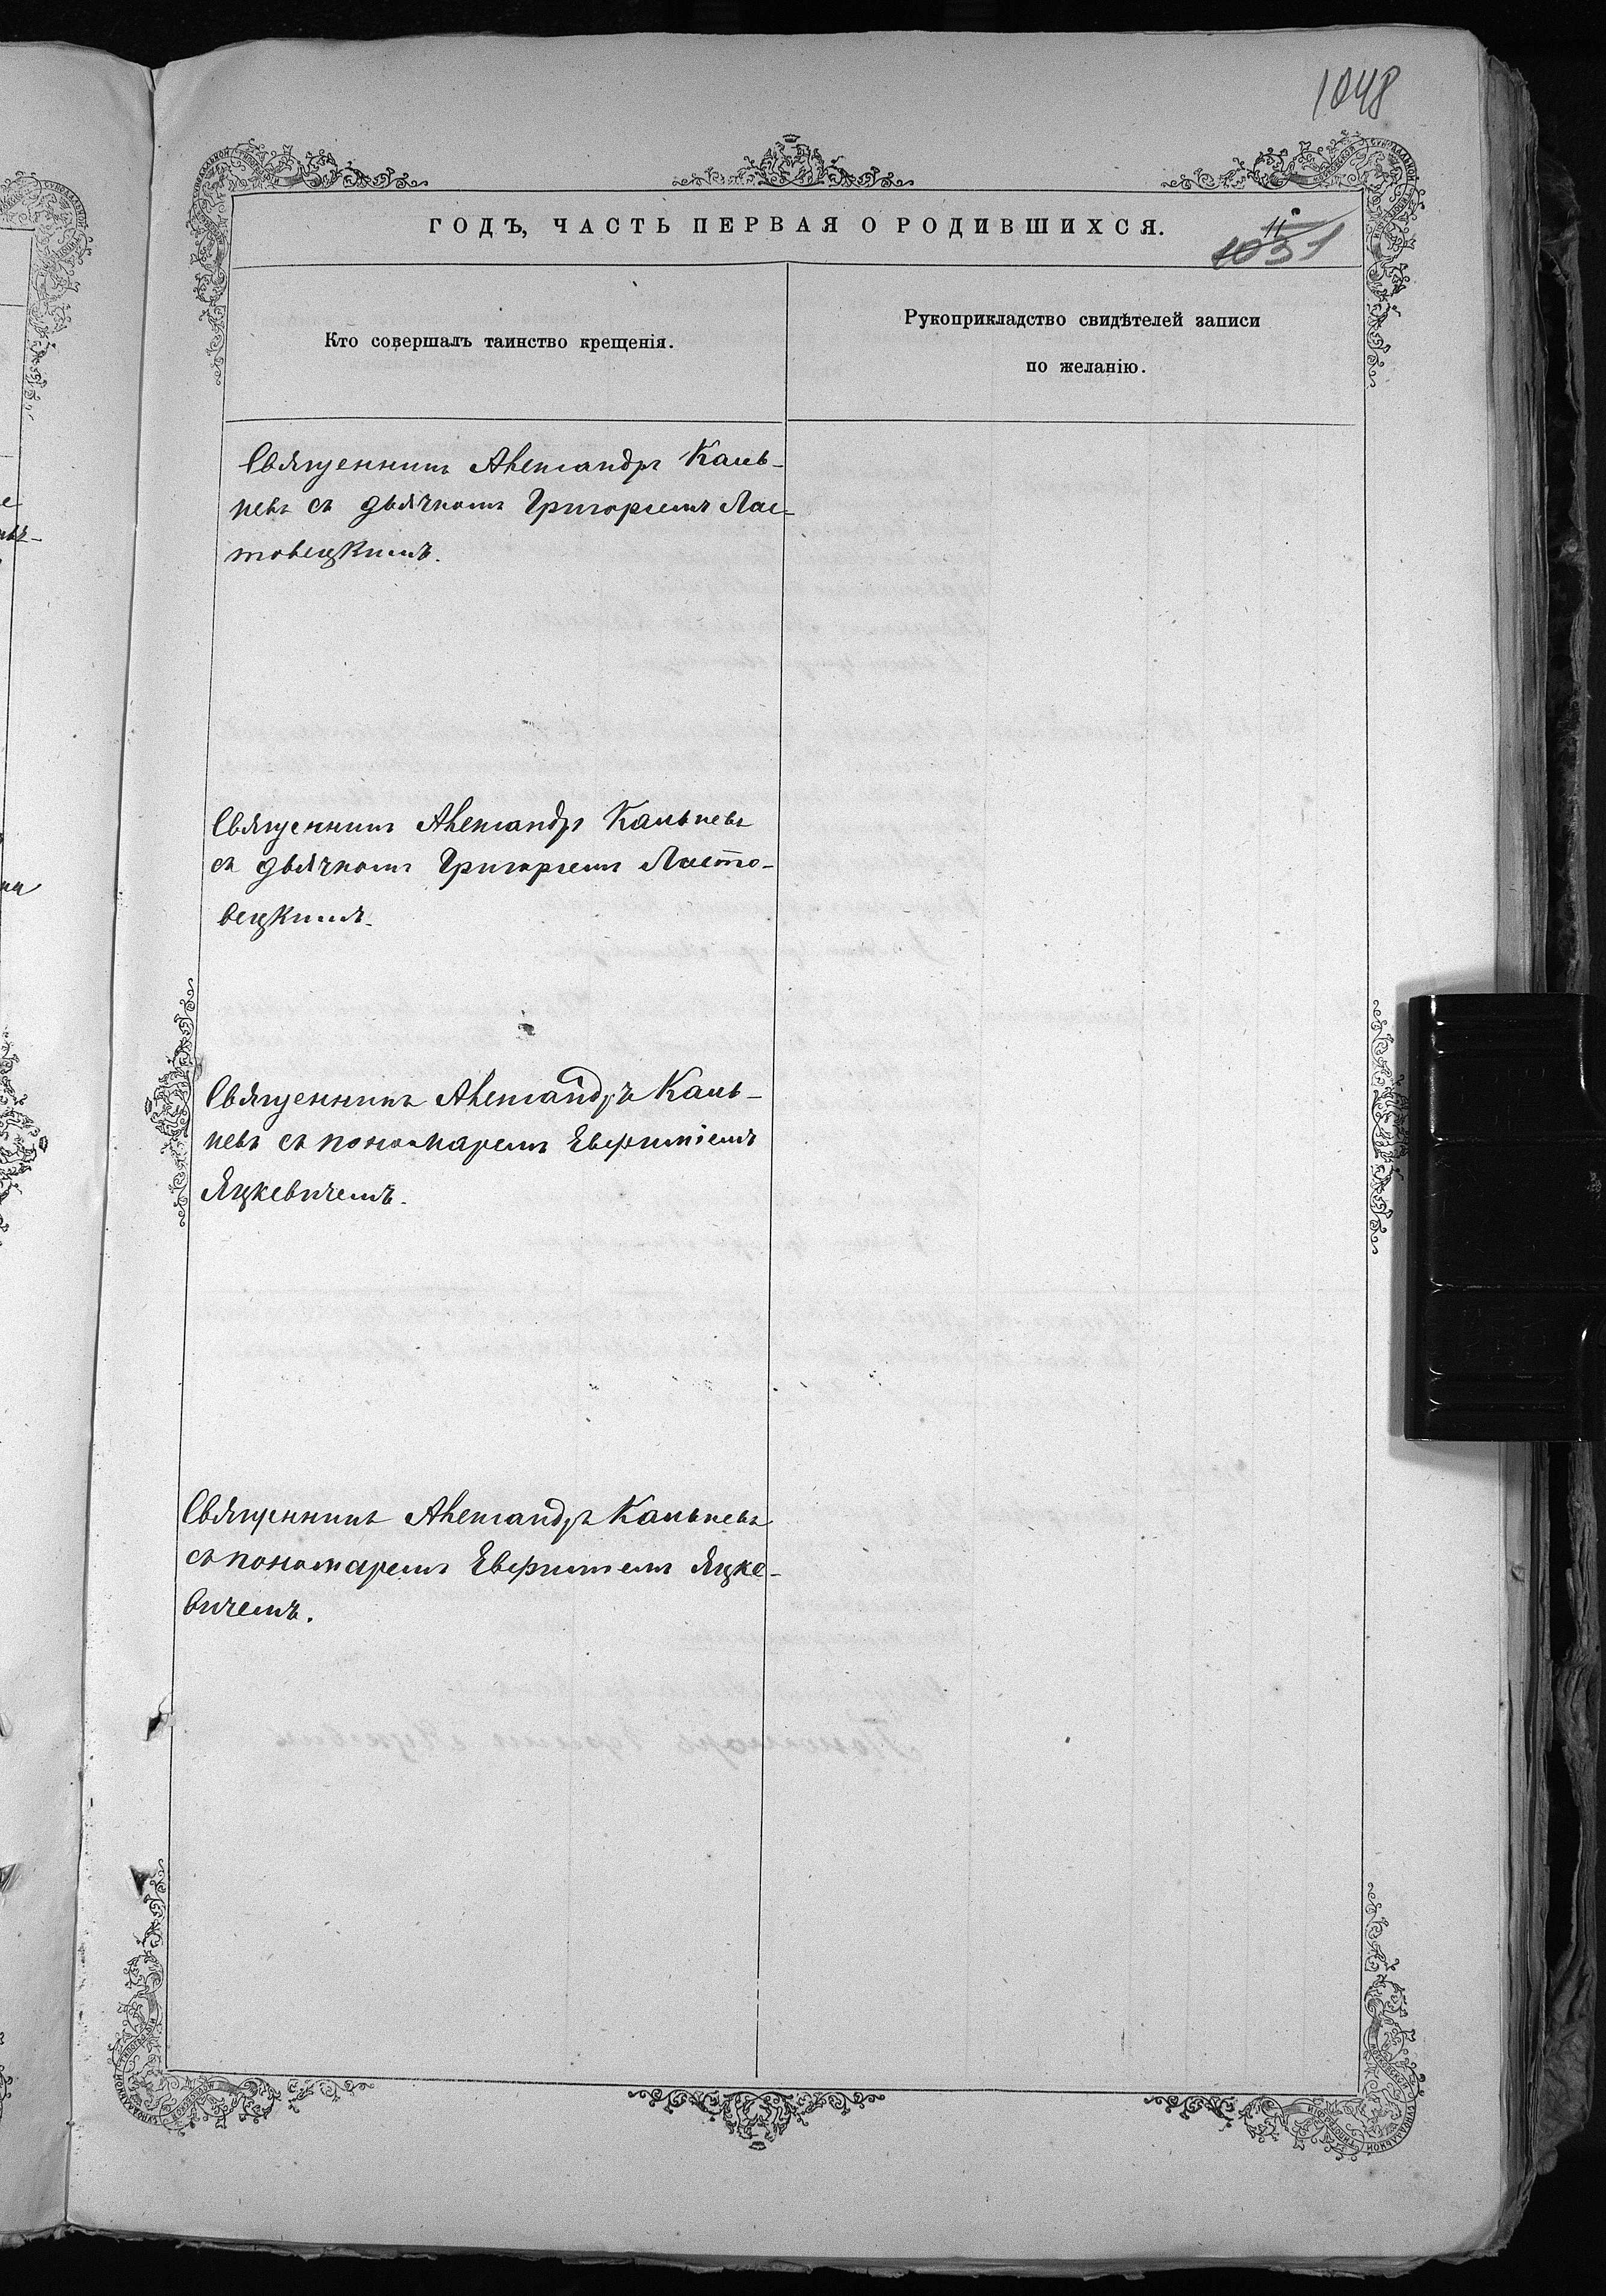 1048
ГОДЪ, ЧАСТЬ ПЕРВАЯ О РОДИВШИХСЯ.
11
1051
Кто совершалъ таинство крещенія.
Рукоприкладство свидѣтелей записи
по желанію.
Священникъ Александръ Каль-
невъ съ дьячкомъ Григоріемъ Лас-
товецкимъ.
Священникъ Александръ Кальневъ
съ дьячкомъ Григоріемъ Ласто-
вецкимъ.
Священникъ Александръ Каль-
невъ съ пономаремъ Евфиміемъ
Яцкевичемъ.
Священникъ Александръ Кальневъ
съ пономаремъ Евфиміемъ Яцке-
вичемъ.